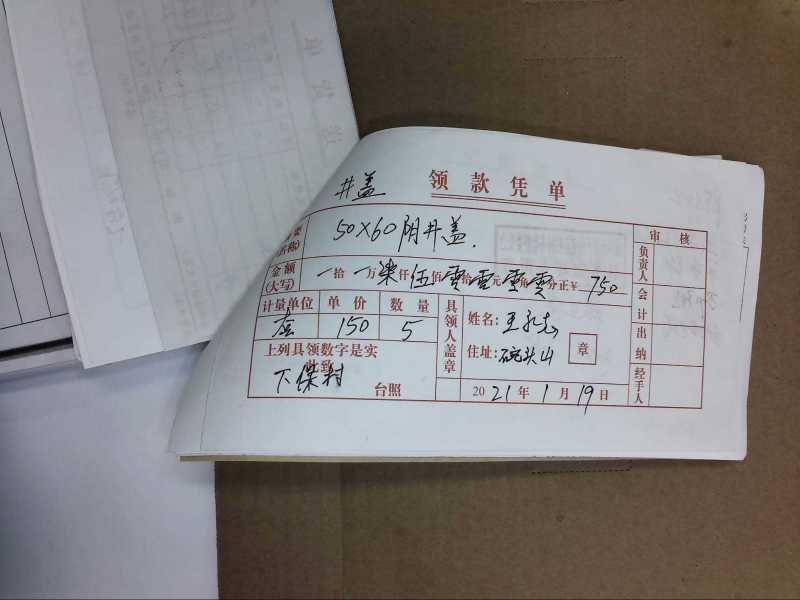 井盖 领款凭单
要 50×60阴井盖. 审核
名称)
负责人
金额(大写) 一拾一万柒仟伍佰零拾零元零角零分正¥ 750
会计
计量单位 单价 数量 具领人盖章 姓名:
套 150 5
住址: 碗头山 章 出纳
上列具领数字是实
此致
下保村 台照 2021年1月19日 经手人